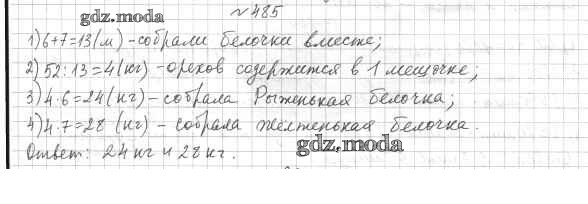 №485
gdz.moda
1) 6+7=13(м) -собрали белочки вместе;
2) 52:13=4(кг) -орехов содержится в 1 мешочке;
3) 4·6=24(кг) - собрала Рыженькая белочка;
4) 4·7=28 (кг) - собрала желтенькая белочка.
Ответ: 24 кг и 28 кг.
gdz.moda